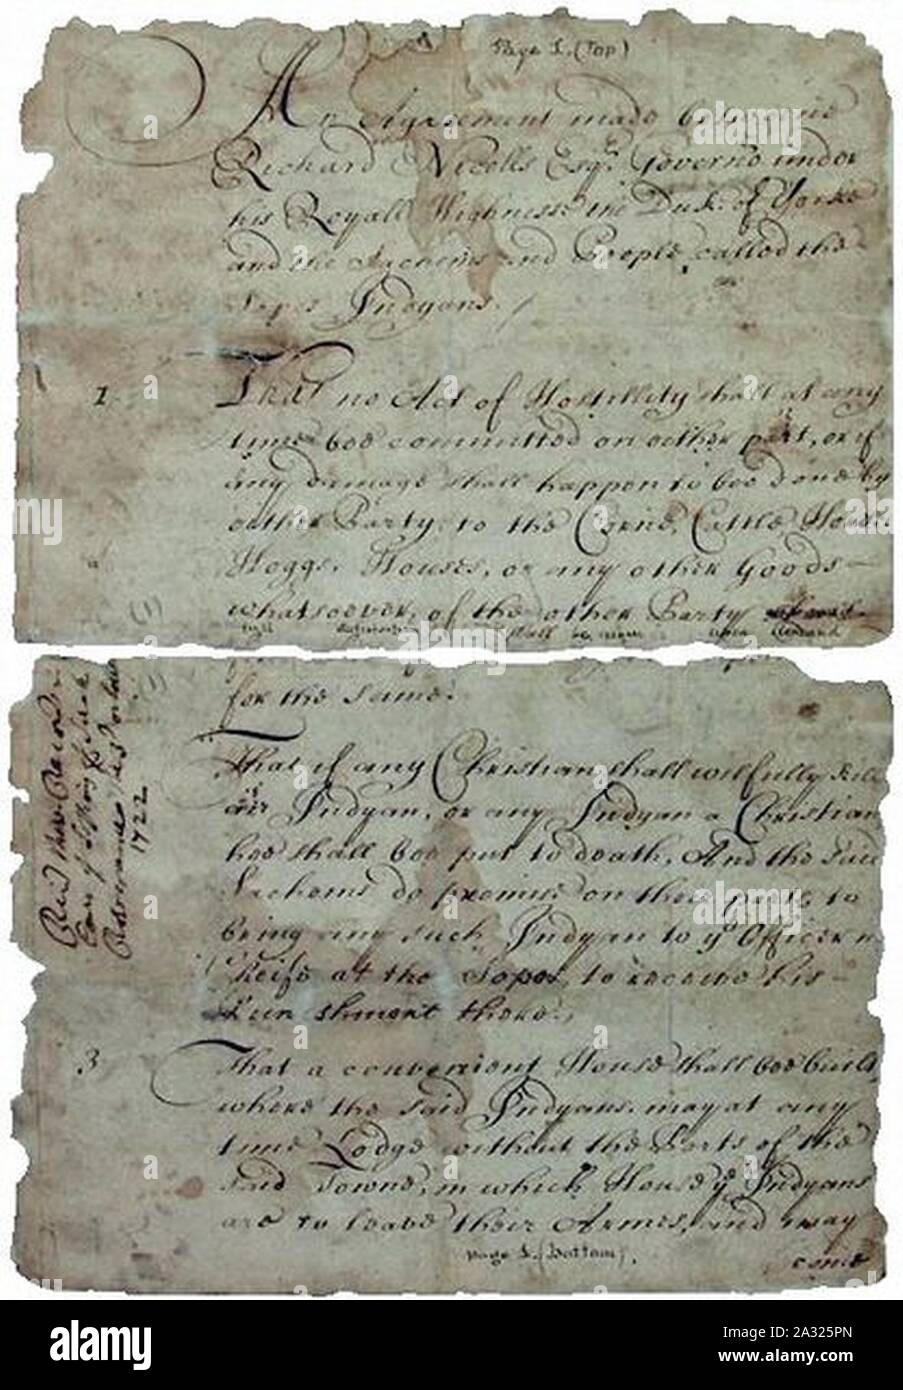 Page 1. (Top)
An Agreement made betweene
Richard Nicolls Esqr. Governor under
his Royall Highnesse the Duke of Yorke
and the Sachems and People, called the
Sopes Indyans.
1 That no Act of Hostillity shall at any
time bee committed on either part, or if
any damage shall happen to bee done by
either Party, to the Corne, Cattle
Hoggs, Houses, or any other Goods
whatsoever, of the other Party
full shall be given upon demand
for the same.
That if any Christian shall wilfully kill
an Indyan, or any Indyan a Christian
hee shall bee put to death, And the said
Sachems do promise on their parts, to
bring any such Indyan to ye Officer in
Cheife at the Sopes, to receive his
Punishment there.
3 That a convenient House shall bee built
where the said Indyans may at any
time Lodge without the Ports of the
said Towne, in which House ye Indyans
are to leave their Armes, and may
come
Page 1. (Bottom).
1722
alamy
Image ID: 2A325PN
www.alamy.com